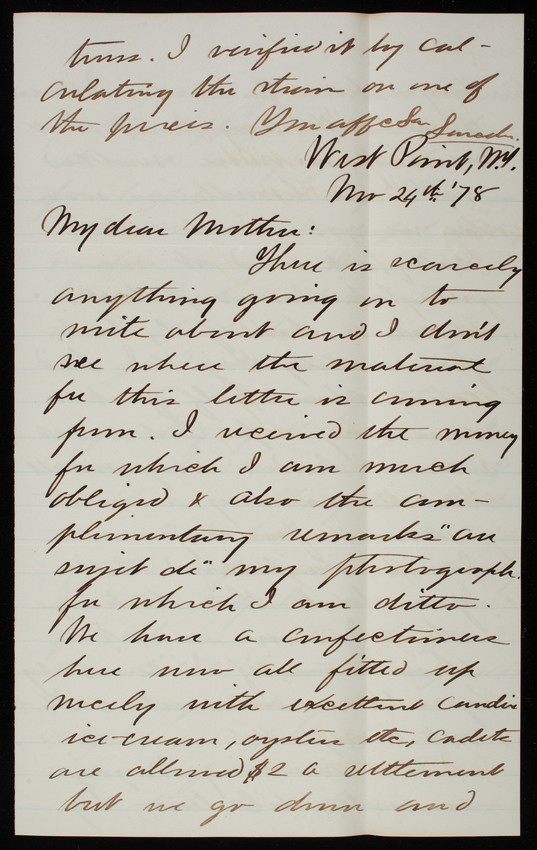 tions. I verified it by cal-
culating the strain on one of
the pieces. Your affc Son Lincoln.
West Point, N.Y.
Nov 24th '78
My dear Mother:
There is scarcely
anything going on to
write about and I don't
see where the material
for this letter is coming
from. I received the money
for which I am much
obliged & also the com-
plimentary remarks "au
sujet de" my photograph.
for which I am ditto.
We have a confectioners
here now all fitted up
nicely with excellent candies
ice-cream, oysters etc, cadets
are allowed $2 a settlement
but we go down and